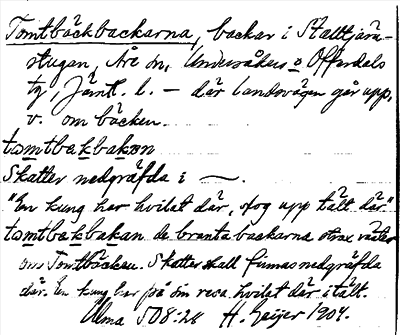 Tomtbäckbackarna, backar i Stalltjärn-
stugan, Åre sn, Undersåkers o Offerdals
tg, Jämtl. l. — där landsvägen går upp,
v. om bäcken.
tomtbakbakan
Skatter nedgräfda i ~.
"En kung har hvilat där, slog upp tält där"
tomtbakbakan de branta backarna strax väster
om Tomtbäcken. Skatter skall finnas nedgräfda
där. En kung har på en resa hvilat där i tält.
Ulma 508:28 H. Geijer 1904.